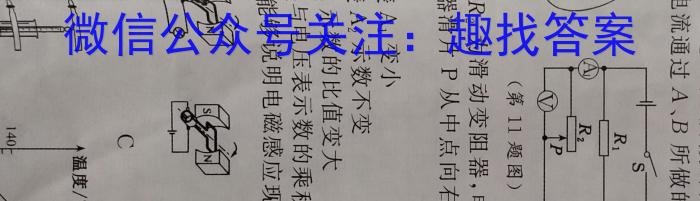 微信公众号关注：趣找答案
电流通过 A、B 所做的
S
R₁
R₂
P
A₁
V
（第 11 题图）
滑动变阻器，
器滑片 P 从中点向右
变小
示数不变
示数的比值变大
与电压表示数的乘积
能够说明电磁感应现
S
N
C
N
140
温度/